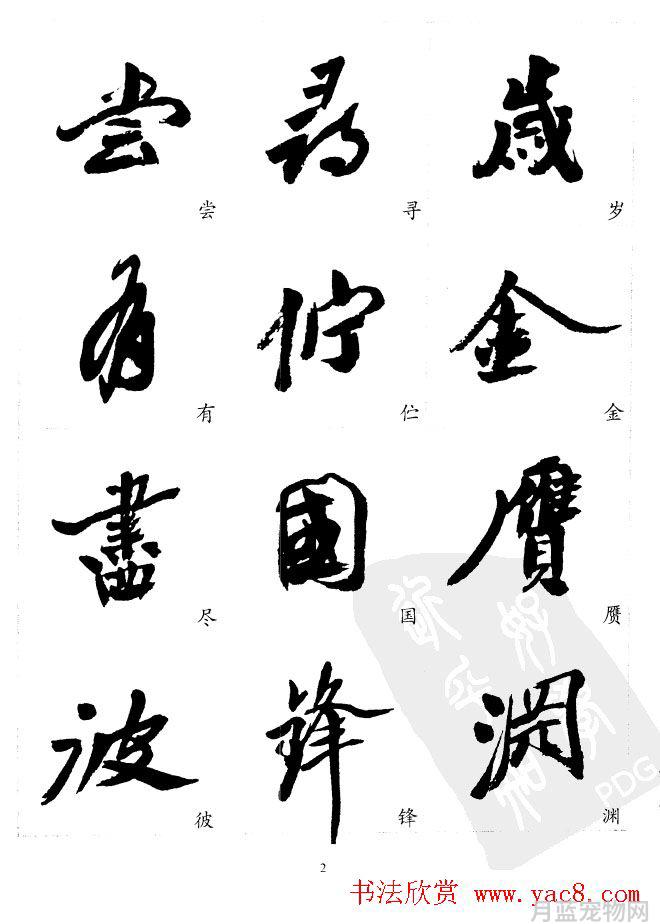 嘗 尋 歲
尝 寻 岁
有 佇 金
有 伫 金
盡 國 贋
尽 国 赝
彼 鋒 淵
彼 锋 渊
PDG
2
书法欣赏 www.yac8.com
月蓝宠物网